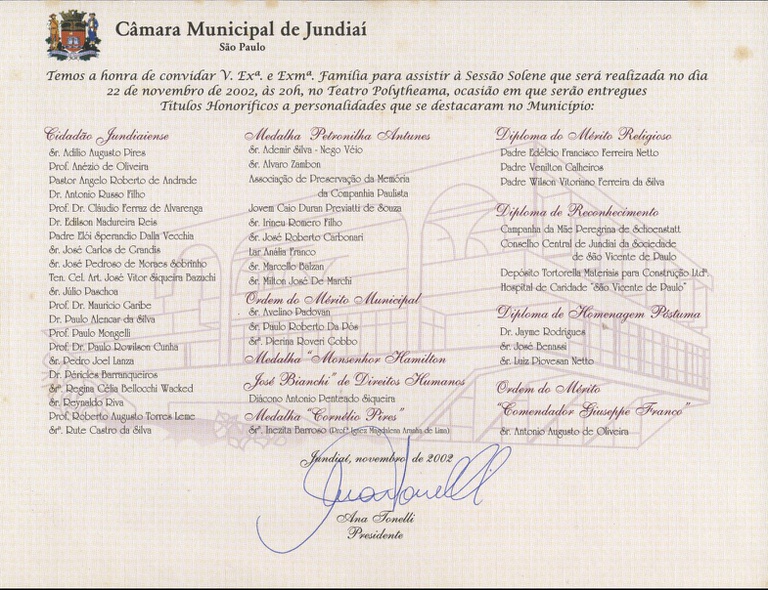 Câmara Municipal de Jundiaí
São Paulo
Temos a honra de convidar V. Exª. e Exmª. Família para assistir à Sessão Solene que será realizada no dia
22 de novembro de 2002, às 20h, no Teatro Polytheama, ocasião em que serão entregues
Títulos Honoríficos a personalidades que se destacaram no Município:
Cidadão Jundiaiense
Sr. Adílio Augusto Pires
Prof. Anézio de Oliveira
Pastor Angelo Roberto de Andrade
Dr. Antonio Russo Filho
Prof. Dr. Cláudio Ferraz de Alvarenga
Dr. Edilson Madureira Reis
Padre Elói Sperandio Dalla Vecchia
Sr. José Carlos de Grandis
Sr. José Pedroso de Moraes Sobrinho
Ten. Cel. Art. José Vitor Siqueira Bazuchi
Sr. Júlio Paschoa
Prof. Dr. Mauricio Garibe
Dr. Paulo Alencar da Silva
Prof. Paulo Mongelli
Prof. Dr. Paulo Rowilson Cunha
Sr. Pedro Joel Lanza
Dr. Péricles Barranqueiros
Srª. Regina Célia Bellocchi Wacked
Sr. Reynaldo Riva
Prof. Roberto Augusto Torres Leme
Srª. Rute Castro da Silva
Medalha Petronilha Antunes
Sr. Ademir Silva - Nego Véio
Sr. Alvaro Zambon
Associação de Preservação da Memória
da Companhia Paulista
Jovem Caio Duran Previatti de Souza
Sr. Irineu Romero Filho
Sr. José Roberto Carbonari
Lar Anália Franco
Sr. Marcello Balzan
Sr. Milton José De Marchi
Ordem do Mérito Municipal
Sr. Avelino Padovan
Sr. Paulo Roberto Da Pós
Srª. Pierina Roveri Gobbo
Medalha "Monsenhor Hamilton
José Bianchi" de Direitos Humanos
Diácono Antonio Penteado Siqueira
Medalha "Cornélio Pires"
Srª. Inezita Barroso (Profª. Ignez Magdalena Aranha de Lima)
Diploma do Mérito Religioso
Padre Edélcio Francisco Ferreira Netto
Padre Venilton Calheiros
Padre Wilson Vitoriano Ferreira da Silva
Diploma de Reconhecimento
Campanha da Mãe Peregrina de Schoenstatt
Conselho Central de Jundiaí da Sociedade
de São Vicente de Paulo
Depósito Tortorella Materiais para Construção Ltdª.
Hospital de Caridade "São Vicente de Paulo"
Diploma de Homenagem Póstuma
Dr. Jayme Rodrigues
Sr. José Benassi
Sr. Luiz Piovesan Netto
Ordem do Mérito
"Comendador Giuseppe Franco"
Sr. Antonio Augusto de Oliveira
Jundiaí, novembro de 2002
Ana Tonelli
Ana Tonelli
Presidente